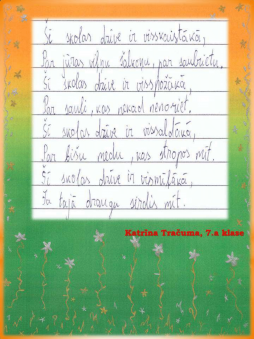 Šī skolas dzīve ir visskaistākā,
Par jūras veļņu šalkoņu, par saulrietu.
Šī skolas dzīve ir visspožākā,
Par sauli, kas nekad nenoriet.
Šī skolas dzīve ir vissaldākā,
Par bišu medu, kas stropos mīt.
Šī skolas dzīve ir vismīļākā,
Ja tajā draugu sirdis mīt.
Katrīna Tračuma, 7.a klase